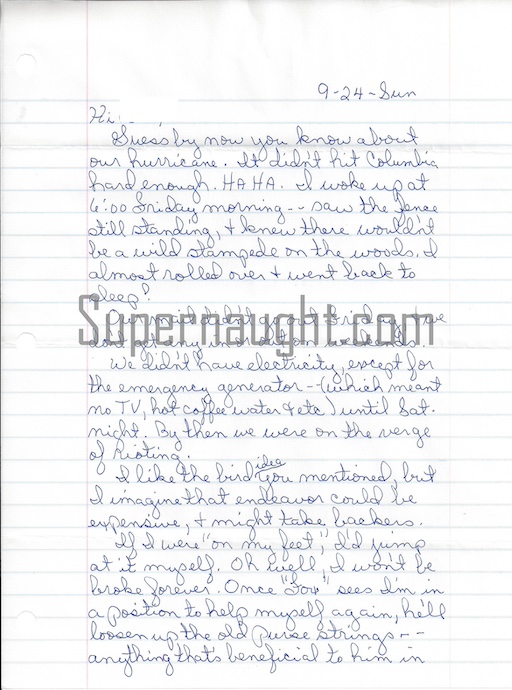 9-24-Sun
Hi
Guess by now you know about
our hurricane. It didn't hit Columbia
hard enough. HA HA. I woke up at
6:00 Friday morning -- saw the fence
still standing, & knew there wouldn't
be a wild stampede on the woods. I
almost rolled over & went back to
sleep!
Supernaught.com
Our mail didn't go out Friday, & we
don't get any in or out on weekends.
We didn't have electricity, except for
the emergency generator -- (which meant
no TV, hot coffee water & etc) until Sat.
night. By then we were on the verge
of Rioting.
I like the bird idea you mentioned, but
I imagine that endeavor could be
expensive, & might take backers.
If I were "on my feet", I'd jump
at it myself. Oh well, I won't be
broke forever. Once sees I'm in
a position to help myself again, he'll
loosen up the old purse strings --
anything that's beneficial to him in